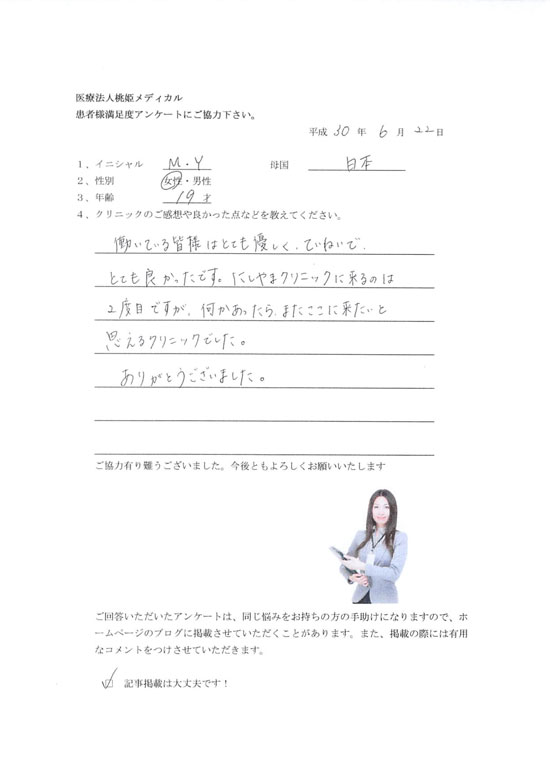 医療法人桃姫メディカル
患者様満足度アンケートにご協力下さい。
平成 30 年 6 月 22 日
1、イニシャル M・Y 母国 日本
2、性別 女性・男性
3、年齢 19才
4、クリニックのご感想や良かった点などを教えてください。
働いている皆様はとても優しく、ていねいで、
とても良かったです。にしやまクリニックに来るのは
2度目ですが、何かあったら、またここに来たいと
思えるクリニックでした。
ありがとうございました。
ご協力有り難うございました。今後ともよろしくお願いいたします
ご回答いただいたアンケートは、同じ悩みをお持ちの方の手助けになりますので、ホ
ームページのブログに掲載させていただくことがあります。また、掲載の際には有用
なコメントをつけさせていただきます。
☑ 記事掲載は大丈夫です！